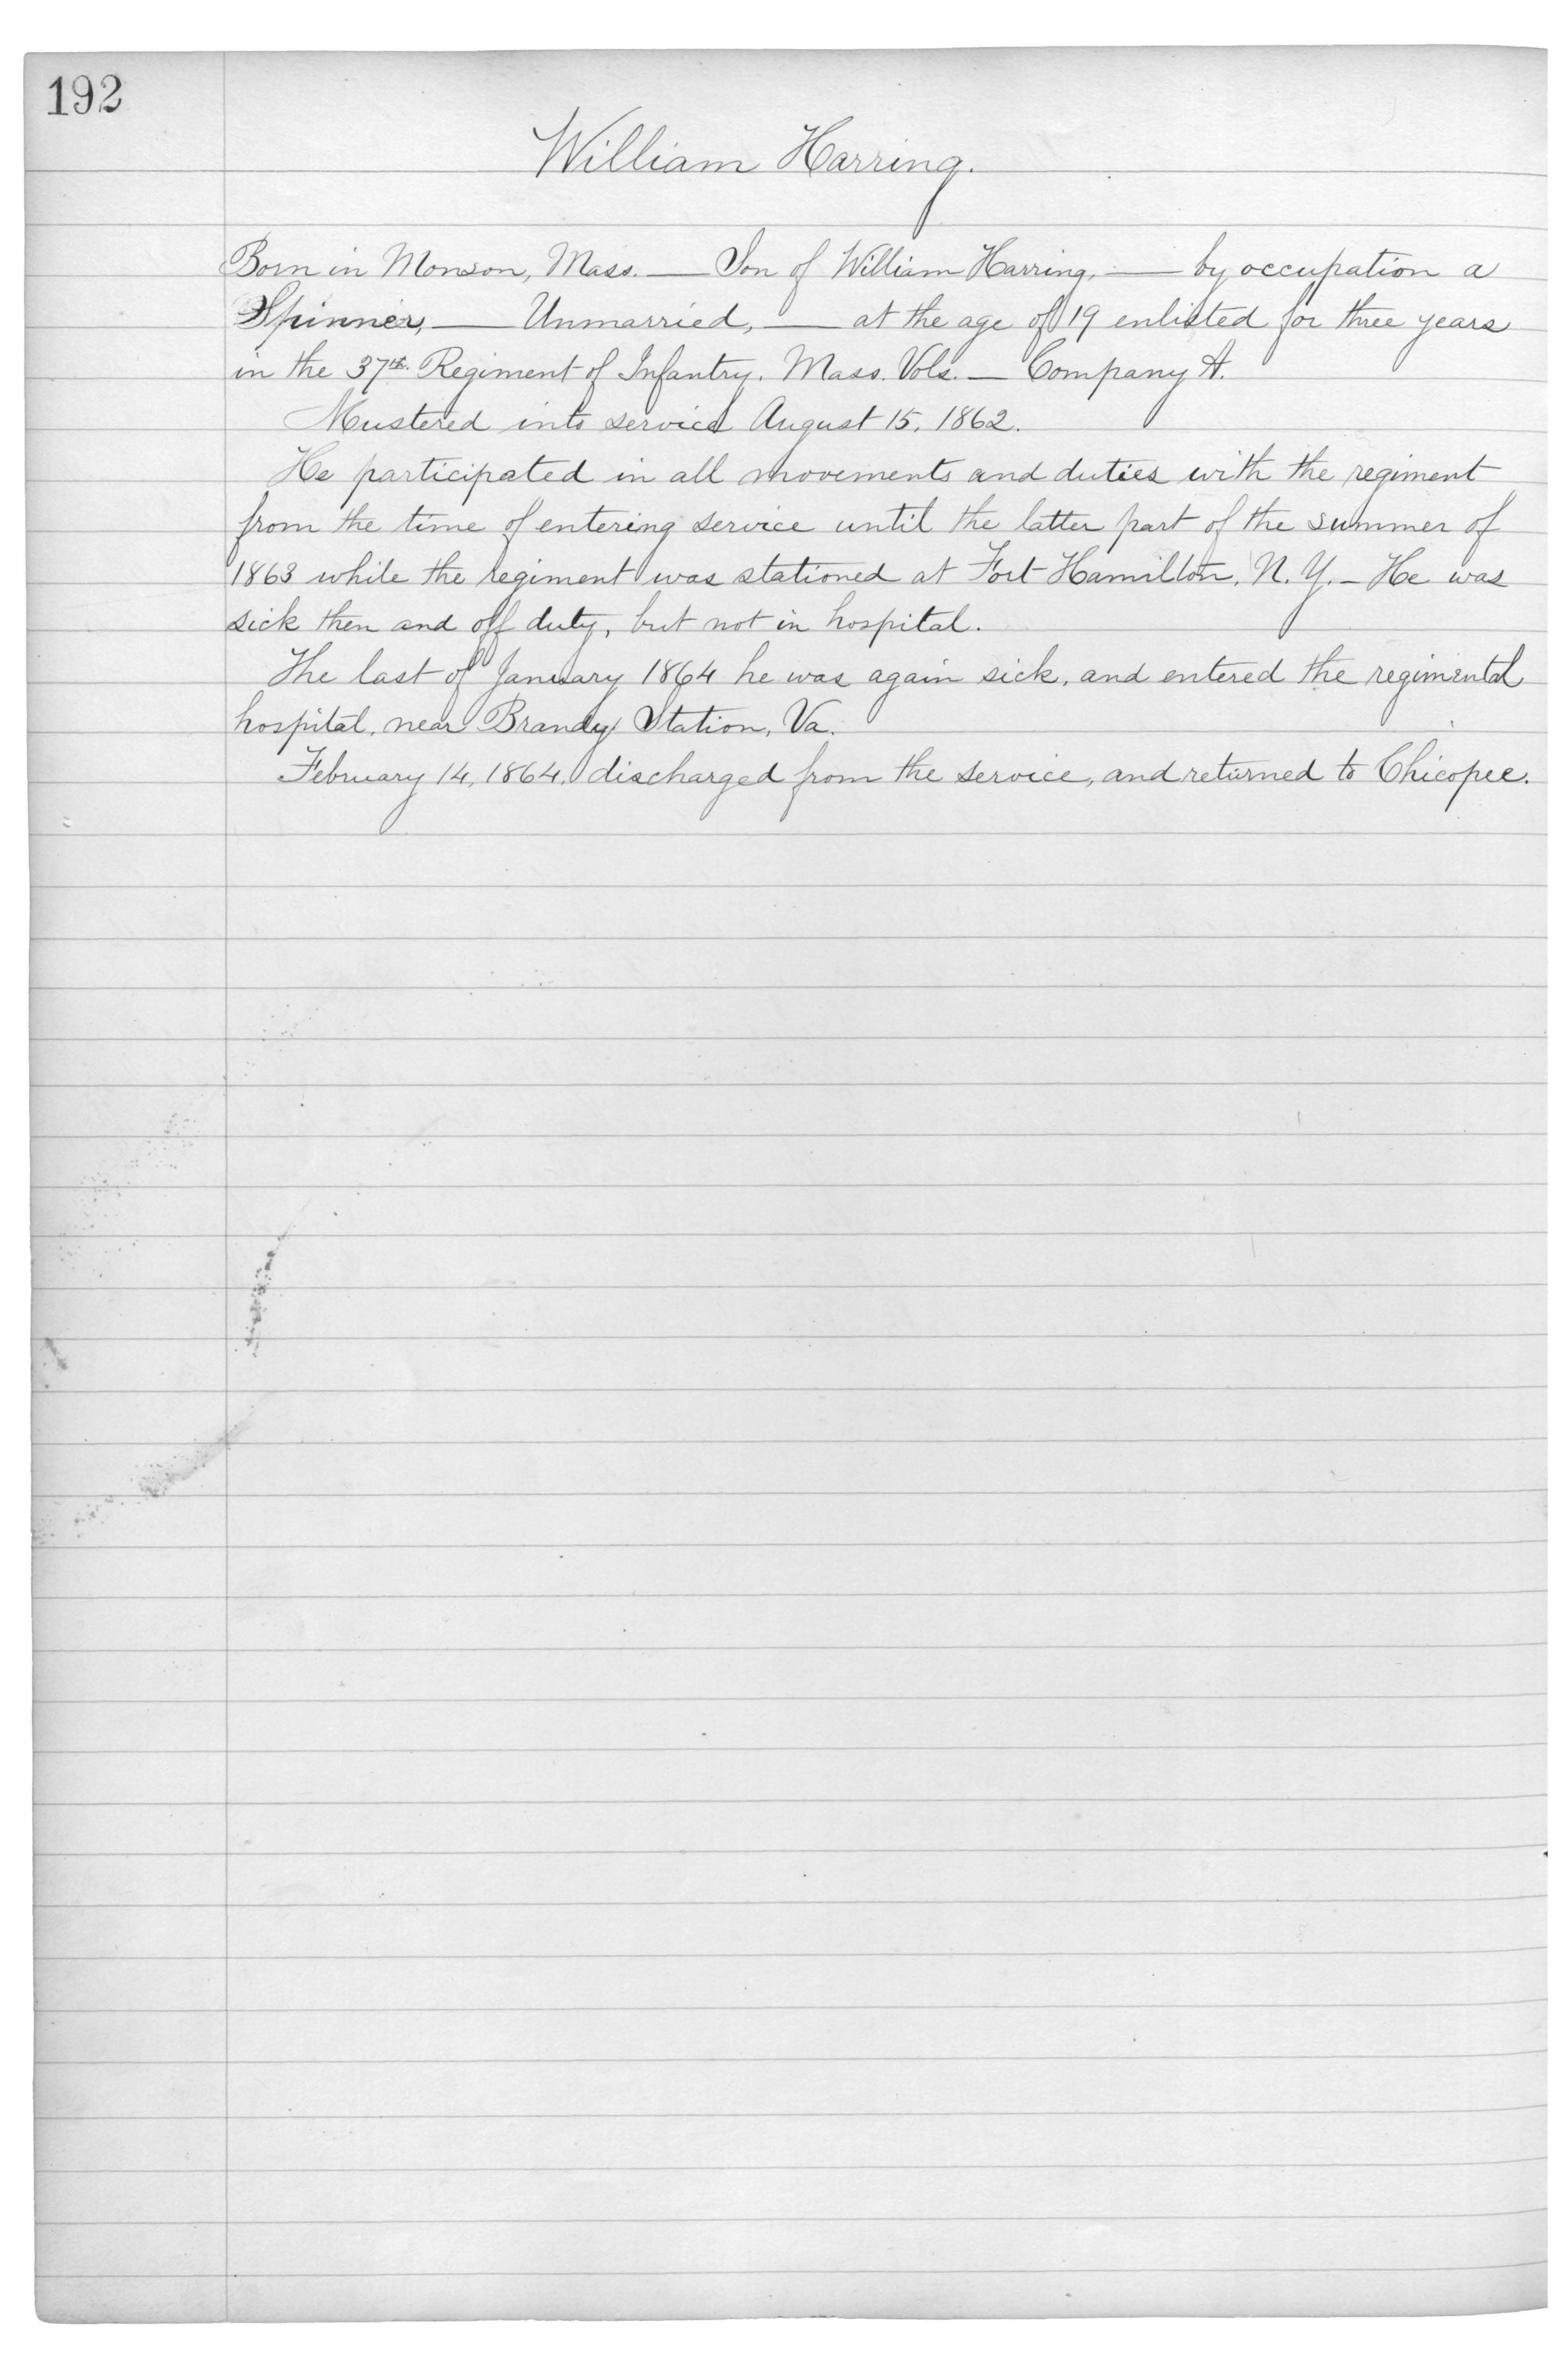 192
William Harring.
Born in Monson, Mass. — Son of William Harring, — by occupation a
Spinner, — Unmarried, — at the age of 19 enlisted for three years
in the 37th. Regiment of Infantry. Mass. Vols. — Company A.
Mustered into service August 15, 1862.
He participated in all movements and duties with the regiment
from the time of entering service until the latter part of the summer of
1863 while the regiment was stationed at Fort Hamilton, N. Y. – He was
sick then and off duty, but not in hospital.
The last of January 1864 he was again sick, and entered the regimental
hospital, near Brandy Station, Va.
February 14, 1864, discharged from the service, and returned to Chicopee.